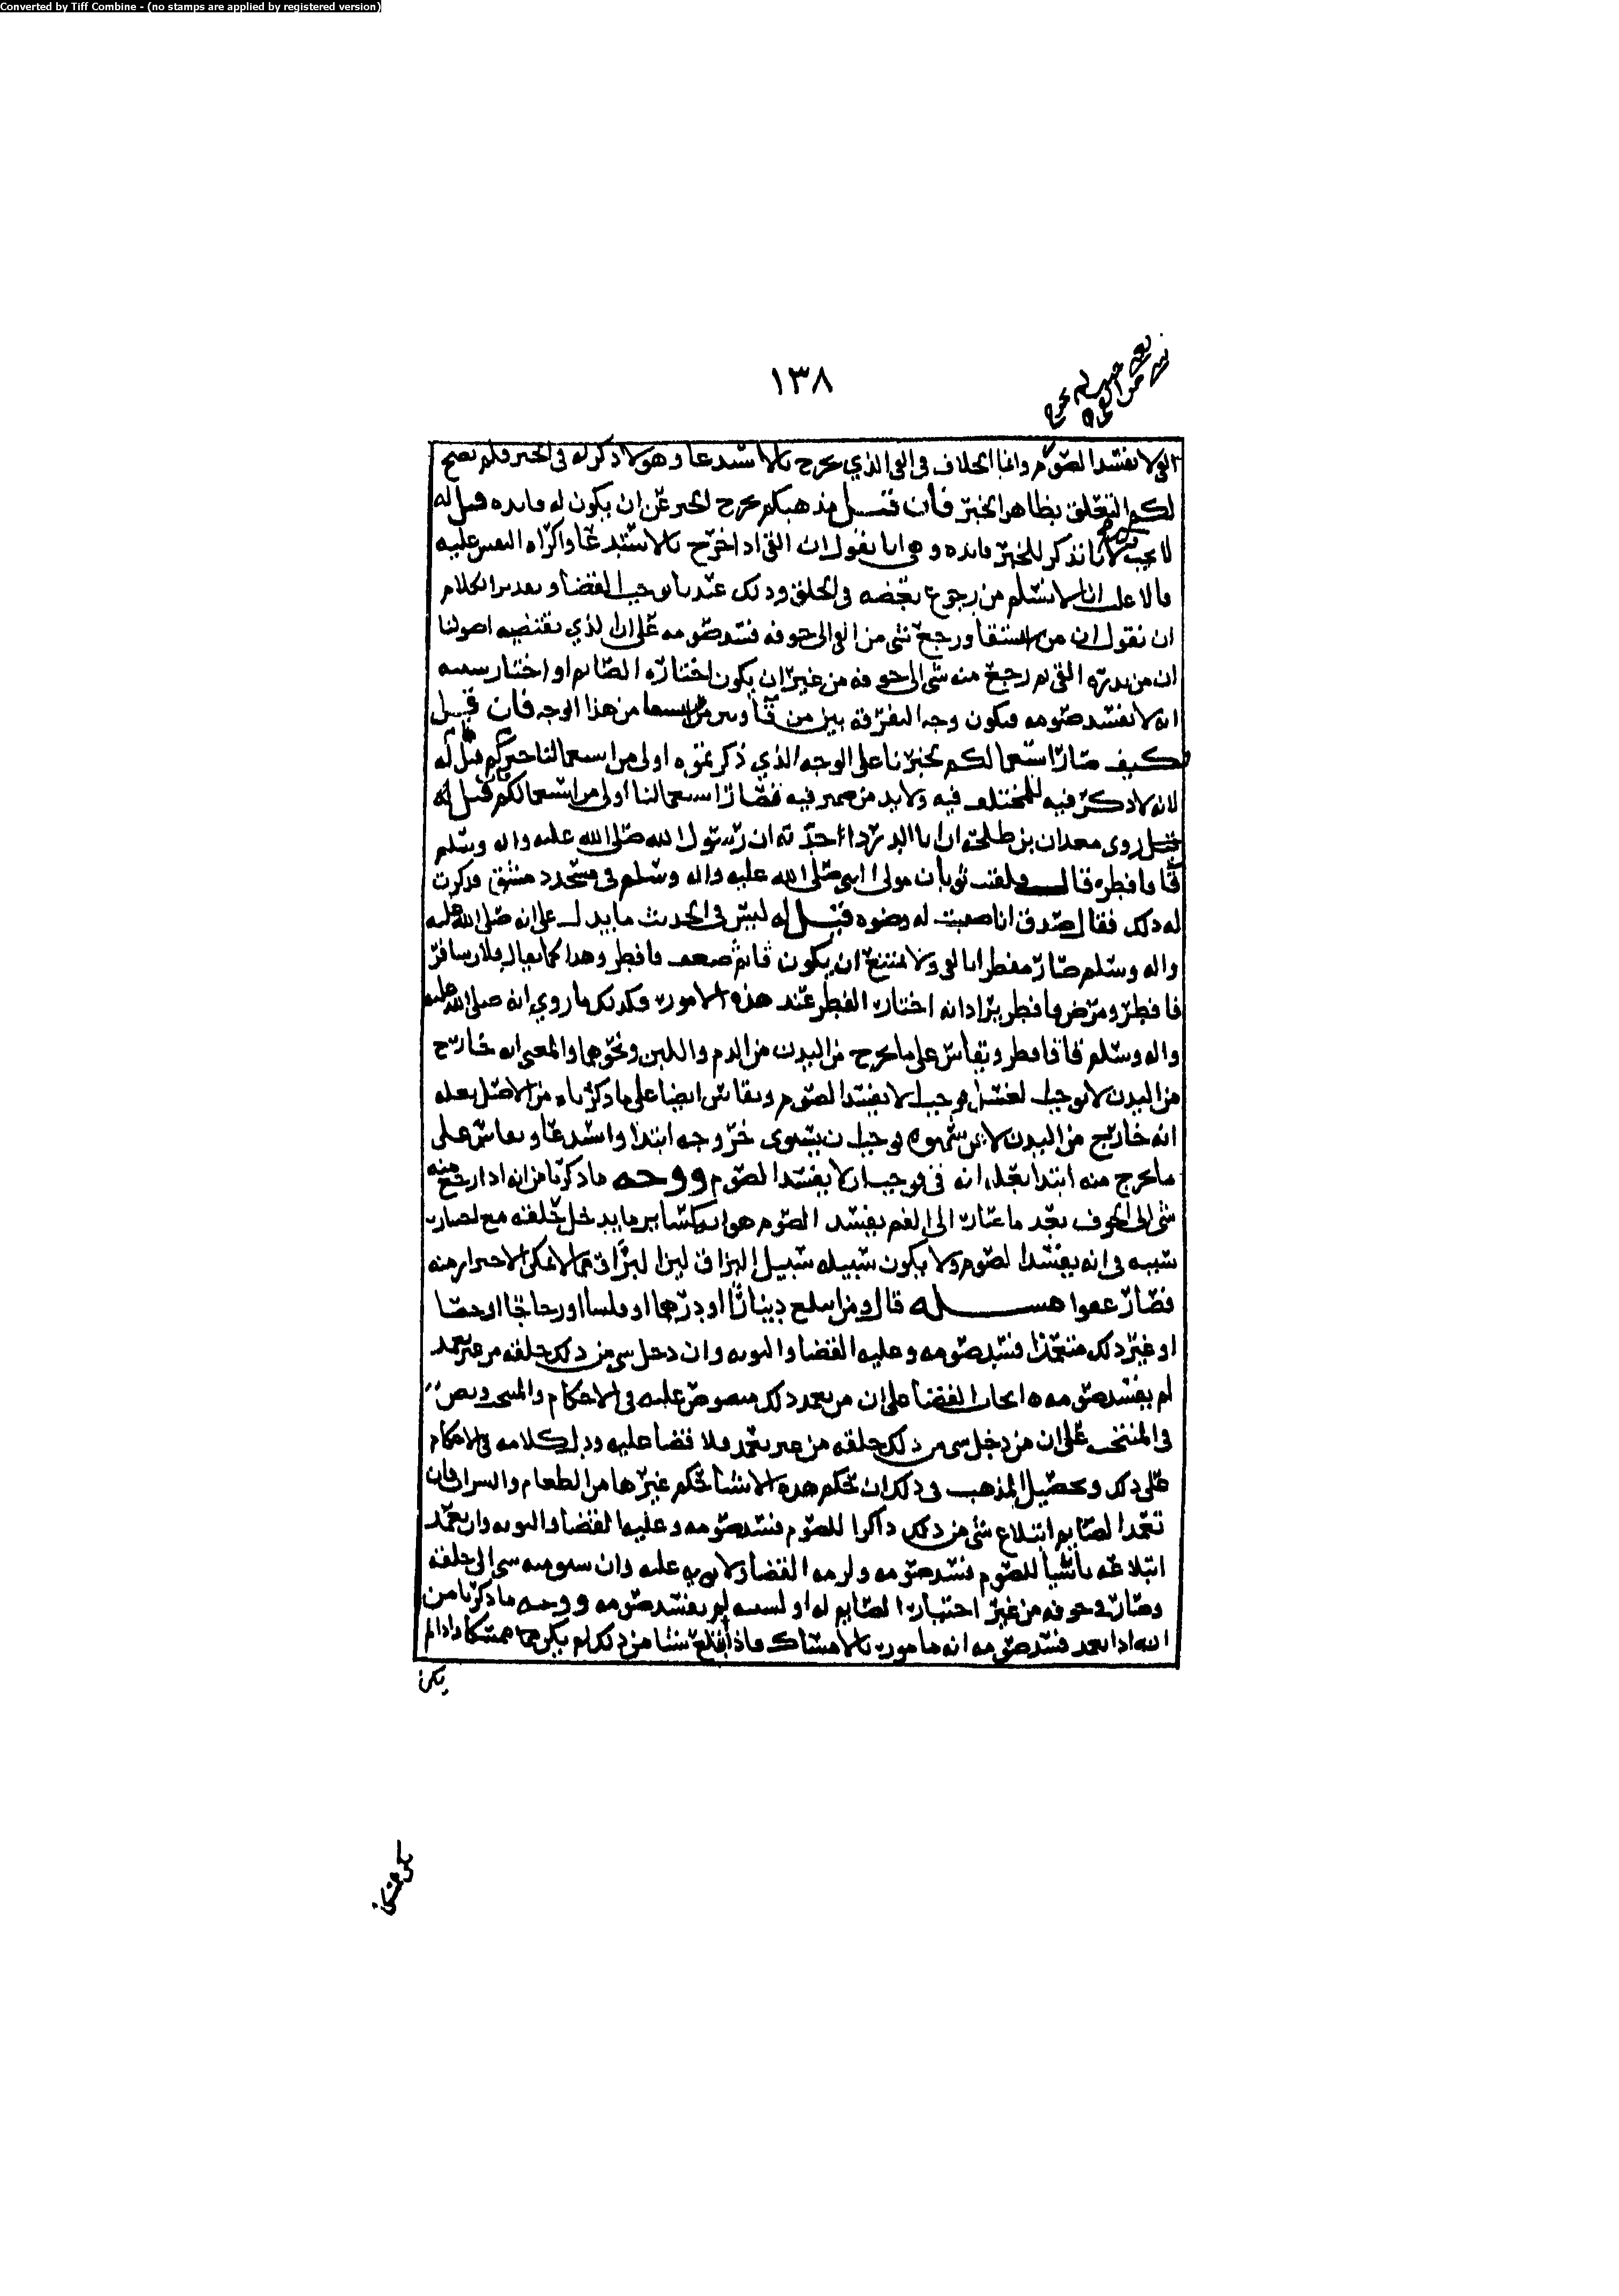 Converted by Tiff Combine - (no stamps are applied by registered version)
١٣٨
القي لا يفسد الصوم وانما الخلاف في القي الذي يخرج بالاستدعا وهو لا ذكر له في الخبر فلم يصح
لكم التعلق بظاهر الخبر فان قيل مذهبكم يخرج الخبر عن ان يكون له فايده قيل له
لا يجب لانا نذكر للخبر فايده وهي انا نقول ان القي اذا اخرج بالاستدعا واكراه النفس عليه
فالاغلب انا لا نسلم من رجوع بعضه في الحلق وذلك عندنا يوجب القضا وتقدير الكلام
ان نقول ان من استقا ورجع شي من القي الى جوفه فسد صومه على ان الذي يقتضيه اصولنا
ان من بدره القي ثم رجع منه شي الى جوفه من غير ان يكون اختاره الصايم او اختار سببه
انه لا يفسد صومه فيكون وجه التفرقة بين من قا ومن استقا من هذا الوجه فان قيل
فكيف صار استعمالكم لخبرنا على الوجه الذي ذكرتموه اولى من استعمالنا خبركم قيل له
لانه لا ذكر فيه للمختلف فيه ولا بد من ضمير فيه فصار استعمالنا اولى من استعمالكم فان قيل
روى معدان بن طلحة ان ابا الدرداء حدثه ان رسول الله صلى الله عليه واله وسلم
قا فافطر قال فلقيت ثوبان مولى النبي صلى الله عليه واله وسلم في مسجد دمشق فذكرت
له ذلك فقال صدق انا صببت له وضوه قيل له ليس في الحديث ما يدل على انه صلى الله عليه
واله وسلم صار مفطرا بالقي ولا يمتنع ان يكون قا ثم ضعف فافطر وهذا كما يقال فلان سافر
فافطر ومرض فافطر يراد انه اختار الفطر عند هذه الامور وكذلك ما روي انه صلى الله عليه
واله وسلم قا فافطر ويقاس على ما يخرج من البدن من الدم واللبن ونحوهما والمعنى انه خارج
من البدن لا يوجب الغسل فوجب الا يفسد الصوم ويقاس ايضا على ما ذكرناه من الاصل بعلة
انه خارج من البدن لا عن شهوه فوجب ان يستوى خروجه ابتدا واستدعا ويقاس على
ما يخرج منه ابتدا بعلة انه قي فوجب ان لا يفسد الصوم ووجه ما ذكرنا من انه اذا رجع منه
شي الى الجوف بعد ما صار الى الفم يفسد الصوم هو انه كساير ما يدخل حلقه مع اختيار
سببه في انه يفسد الصوم ولا يكون سبيله سبيل البزاق لان البزاق مما لا يمكن الاحتراز منه
فصار عفوا مسئله قال ومن ابتلع دينارا او درهما او فلسا او زجاجا او حصا
او غير ذلك متعمدا فسد صومه وعليه القضا والتوبه وان دخل شي من ذلك حلقه من غير تعمد
لم يفسد صومه ايجاب القضا على ان من تعمد ذلك منصوص عليه في الاحكام والمنتخب ونص
في المنتخب على ان من دخل شي من ذلك حلقه من غير تعمد فلا قضا عليه ودل كلامه في الاحكام
على ذلك وتحصيل المذهب في ذلك ان حكم هذه الاشيا حكم غيرها من الطعام والشراب فان
تعمد الصايم ابتلاع شي من ذلك ذاكرا للصوم فسد صومه وعليه القضا والتوبه وان تعمد
ابتلاعه ناسيا للصوم فسد صومه ولزمه القضا ولا توبه عليه وان سبق منه شي الى حلقه
وصار في جوفه من غير اختيار الصايم له او لسببه لم يفسد صومه ووجه ما ذكرنا من
انه اذا تعمد فسد صومه انه مامور بالامساك فاذا ابتلع شيا من ذلك لم يكن ممسكا واذا لم
يكن